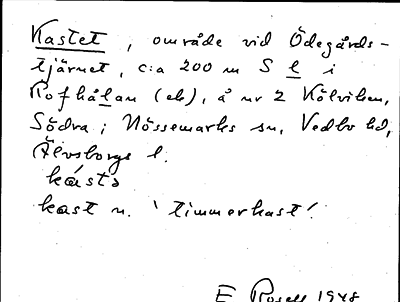 Kastet, område vid Ödegårds-
tjärnet, c:a 200 m S l i
Rofhålan (ek), å nr 2 Kölviken,
Södra; Nössemarks sn, Vedbo hd,
Älvsborgs l.
kástə
kast n. 'timmerkast'.
E Rosell 1948